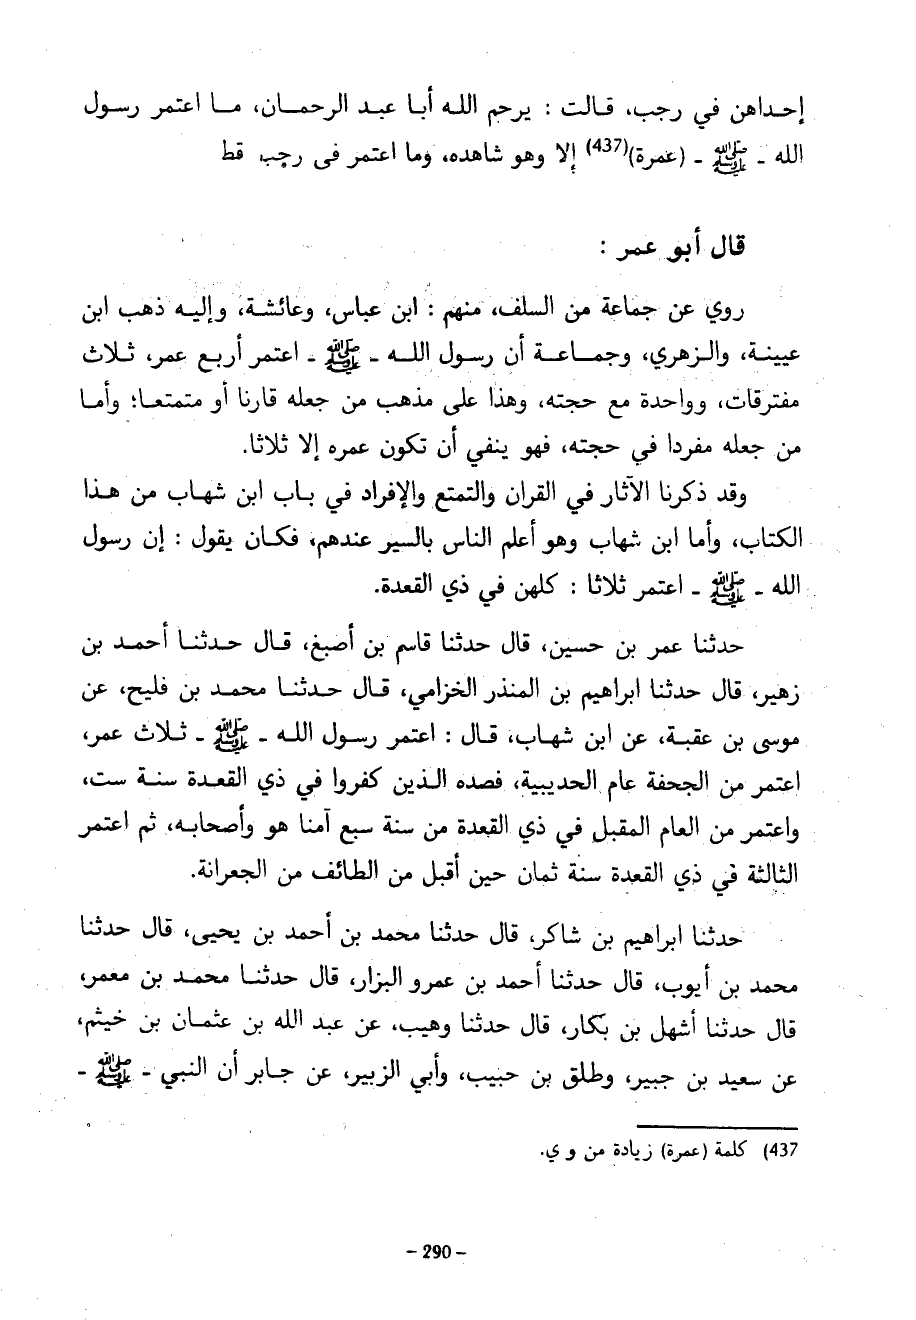 إحداهن في رجب، قالت : يرحم الله أبا عبد الرحمان، ما اعتمر رسول
الله ـ ﷺ ـ (عمرة)(437) إلا وهو شاهده، وما اعتمر في رجب قط
قال أبو عمر :
روي عن جماعة من السلف، منهم : ابن عباس، وعائشة، وإليه ذهب ابن
عيينة، والزهري، وجماعة أن رسول الله ـ ﷺ ـ اعتمر أربع عمر، ثلاث
مفترقات، وواحدة مع حجته، وهذا على مذهب من جعله قارنا أو متمتعا؛ وأما
من جعله مفردا في حجته، فهو ينفي أن تكون عمره إلا ثلاثا.
وقد ذكرنا الآثار في القران والتمتع والإفراد في باب ابن شهاب من هذا
الكتاب، وأما ابن شهاب وهو أعلم الناس بالسير عندهم، فكان يقول : إن رسول
الله ـ ﷺ ـ اعتمر ثلاثا : كلهن في ذي القعدة.
حدثنا عمر بن حسين، قال حدثنا قاسم بن أصبغ، قال حدثنا أحمد بن
زهير، قال حدثنا ابراهيم بن المنذر الخزامي، قال حدثنا محمد بن فليح، عن
موسى بن عقبة، عن ابن شهاب، قال : اعتمر رسول الله ـ ﷺ ـ ثلاث عمر،
اعتمر من الجحفة عام الحديبية، فصده الذين كفروا في ذي القعدة سنة ست،
واعتمر من العام المقبل في ذي القعدة من سنة سبع آمنا هو وأصحابه، ثم اعتمر
الثالثة في ذي القعدة سنة ثمان حين أقبل من الطائف من الجعرانة.
حدثنا ابراهيم بن شاكر، قال حدثنا محمد بن أحمد بن يحيى، قال حدثنا
محمد بن أيوب، قال حدثنا أحمد بن عمرو البزار، قال حدثنا محمد بن معمر،
قال حدثنا أشهل بن بكار، قال حدثنا وهيب، عن عبد الله بن عثمان بن خيثم،
عن سعيد بن جبير، وطلق بن حبيب، وأبي الزبير، عن جابر أن النبي - ﷺ -
437) كلمة (عمرة) زيادة من و ي.
- 290 -